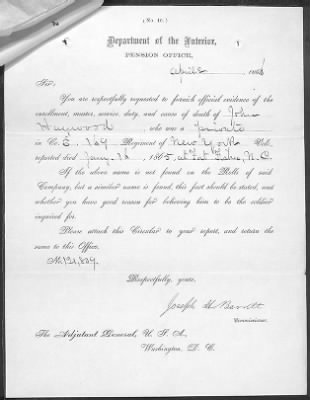 (No. 16.)
Department of the Interior,
PENSION OFFICE,
April 2, 186
Sir:
You are respectfully requested to furnish official evidence of the
enrollment, muster, service, duty, and cause of death of John
Haywood, who was a private
in Co. E, 189 Regiment of New York Vols.,
reported died Jany. 18, 1865, at Fort Fisher, N. C.
If the above name is not found on the Rolls of said
Company, but a similar name is found, this fact should be stated, and
whether you have good reason for believing him to be the soldier
inquired for.
Please attach this Circular to your report, and return the
same to this Office.
No. 121,887.
Respectfully, yours,
Joseph H Barrett
Commissioner.
The Adjutant General, U. S. A.,
Washington, D. C.